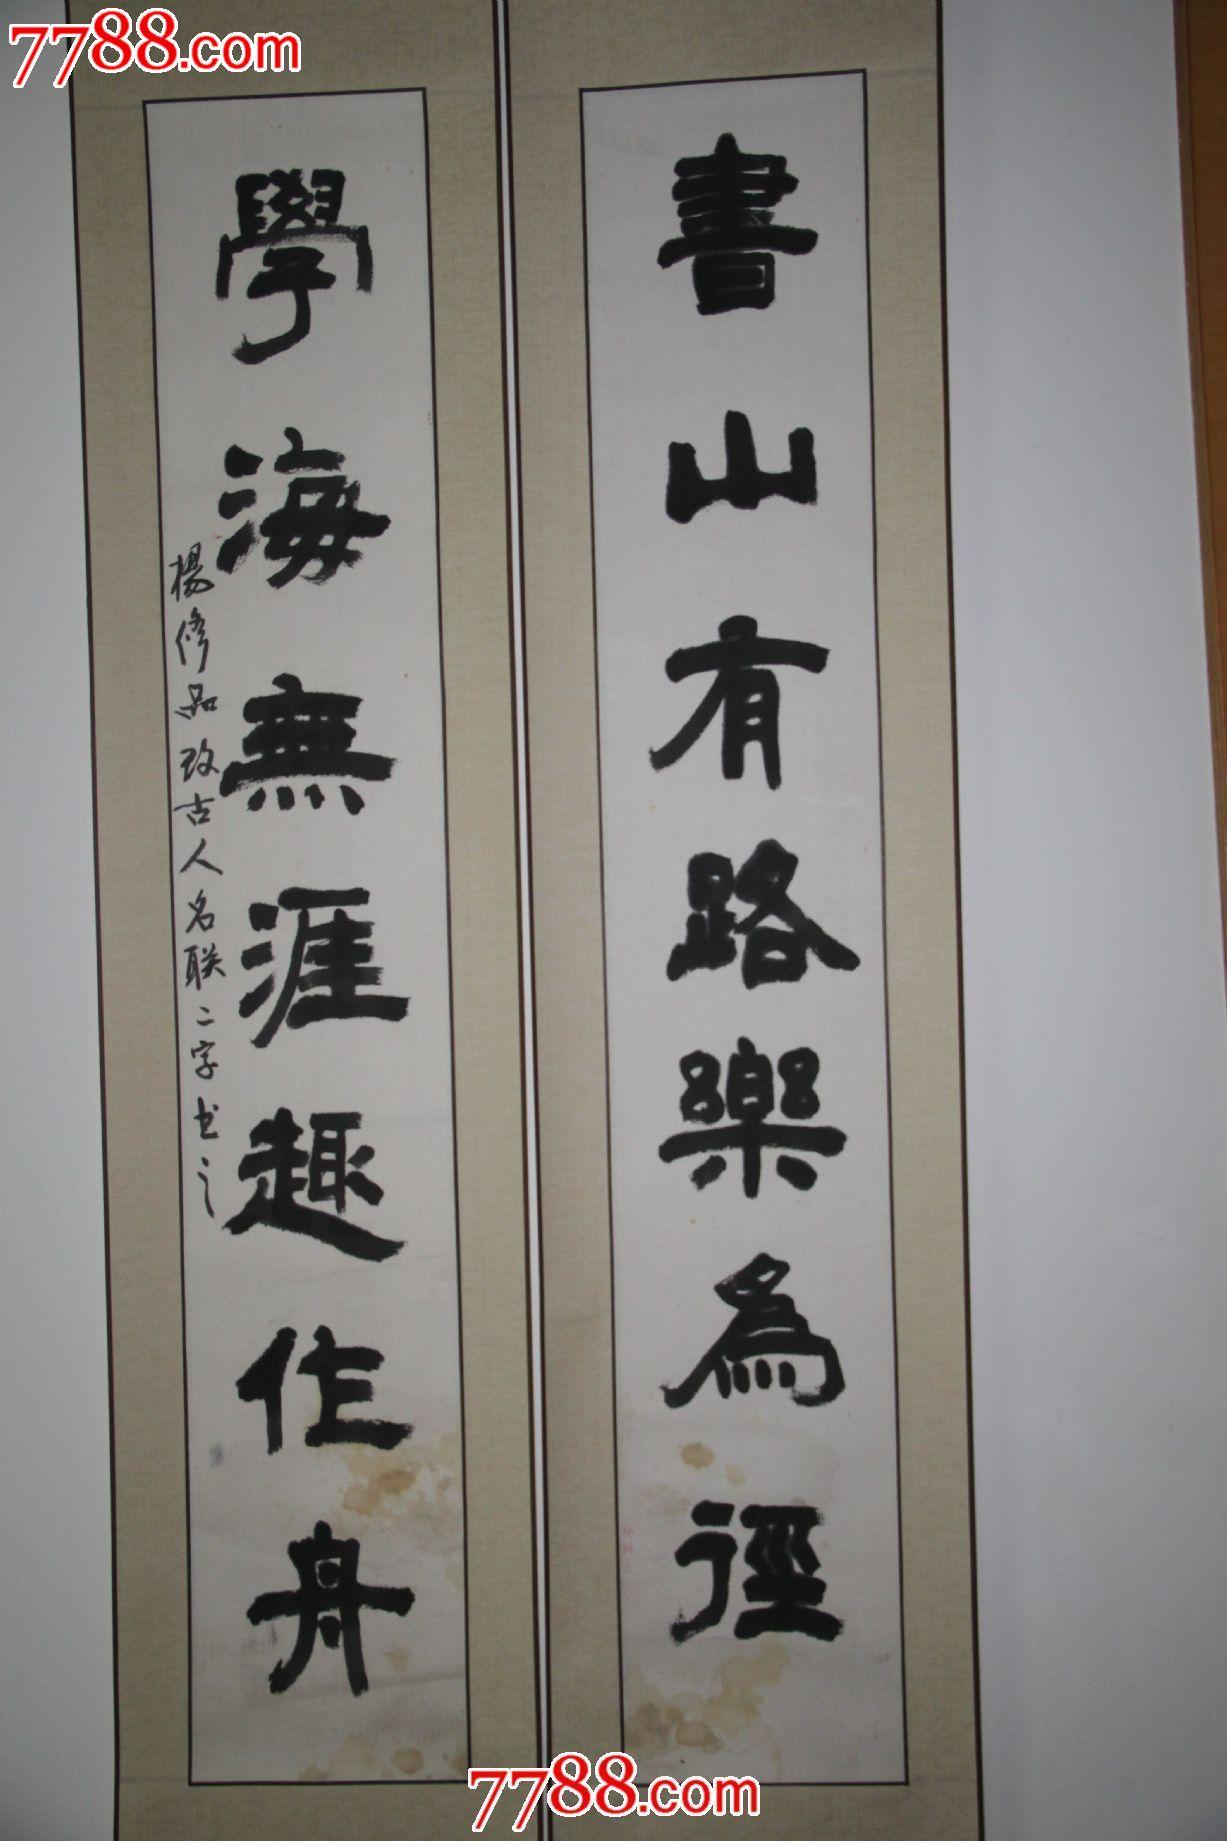 7788.com
書山有路樂為徑
學海無涯趣作舟
楊修品改古人名联二字书之
7788.com